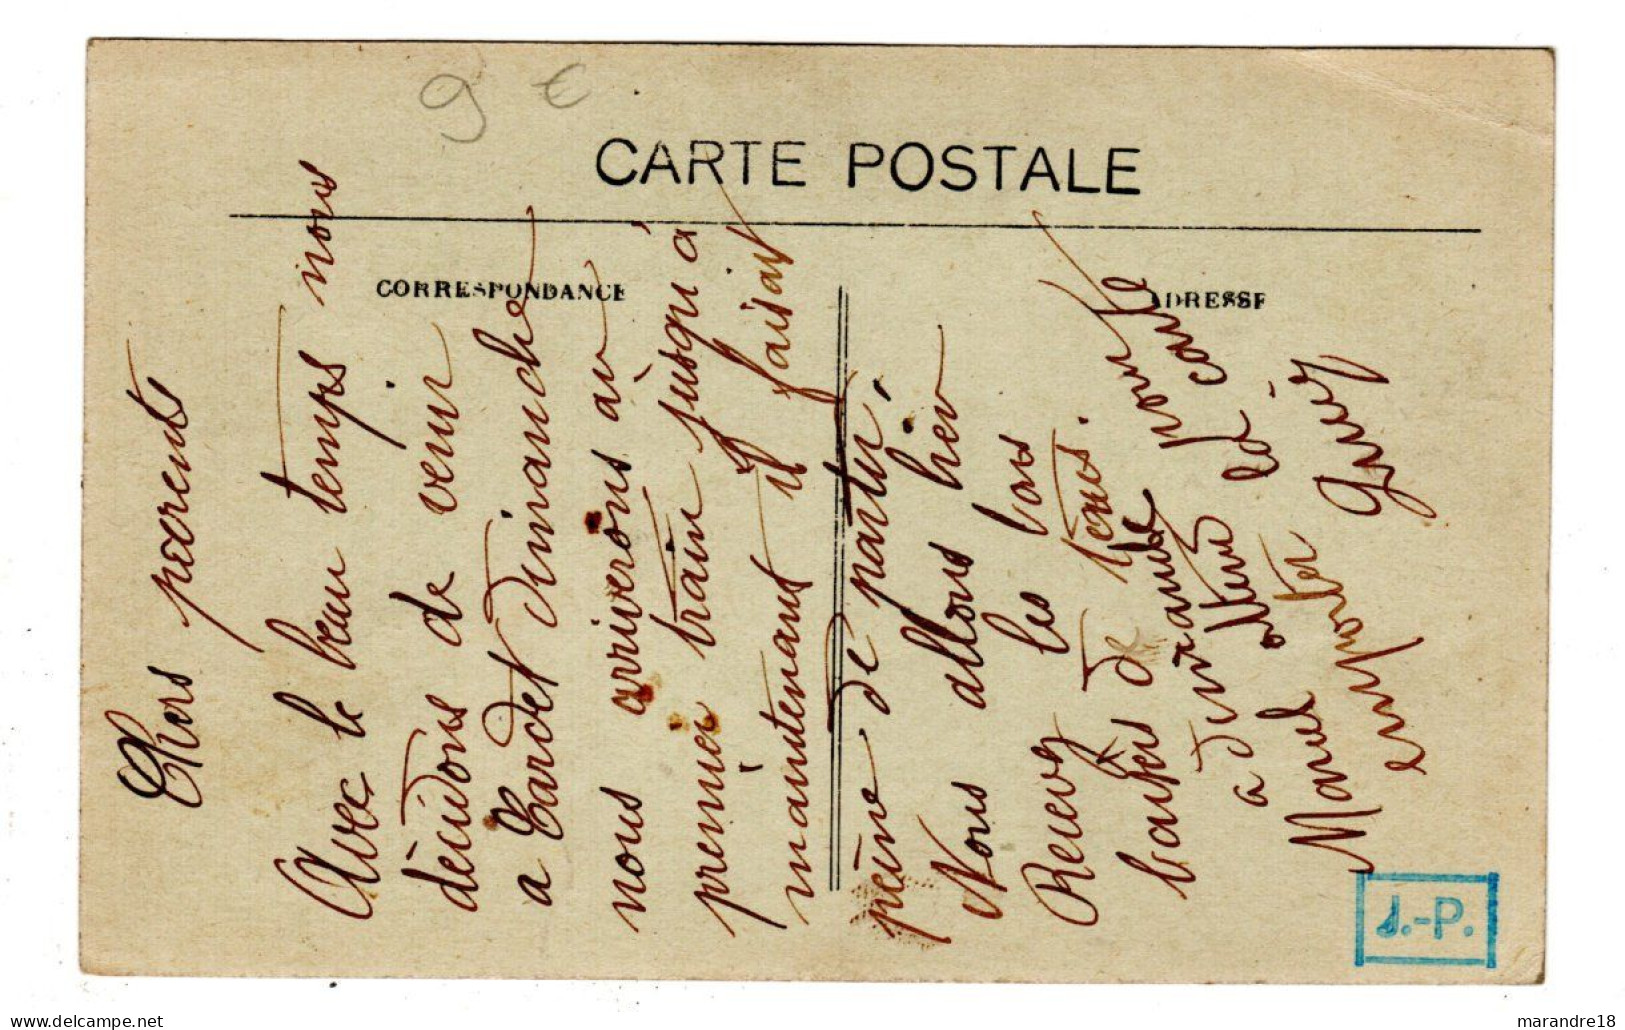 9 €
CARTE POSTALE
CORRESPONDANCE
ADRESSE
Chers parents
Avec le beau temps nous
décidons de venir
a Cardet dimanche
nous arriverons au
premier train jusqu'à
maintenant il faisait
peine de partir,
Nous allons bien
Recevez les bons
baisers de tous.
a dimanche
a attend la carte
Marcel
emporter
J.-P.
delcampe.net
marandre18